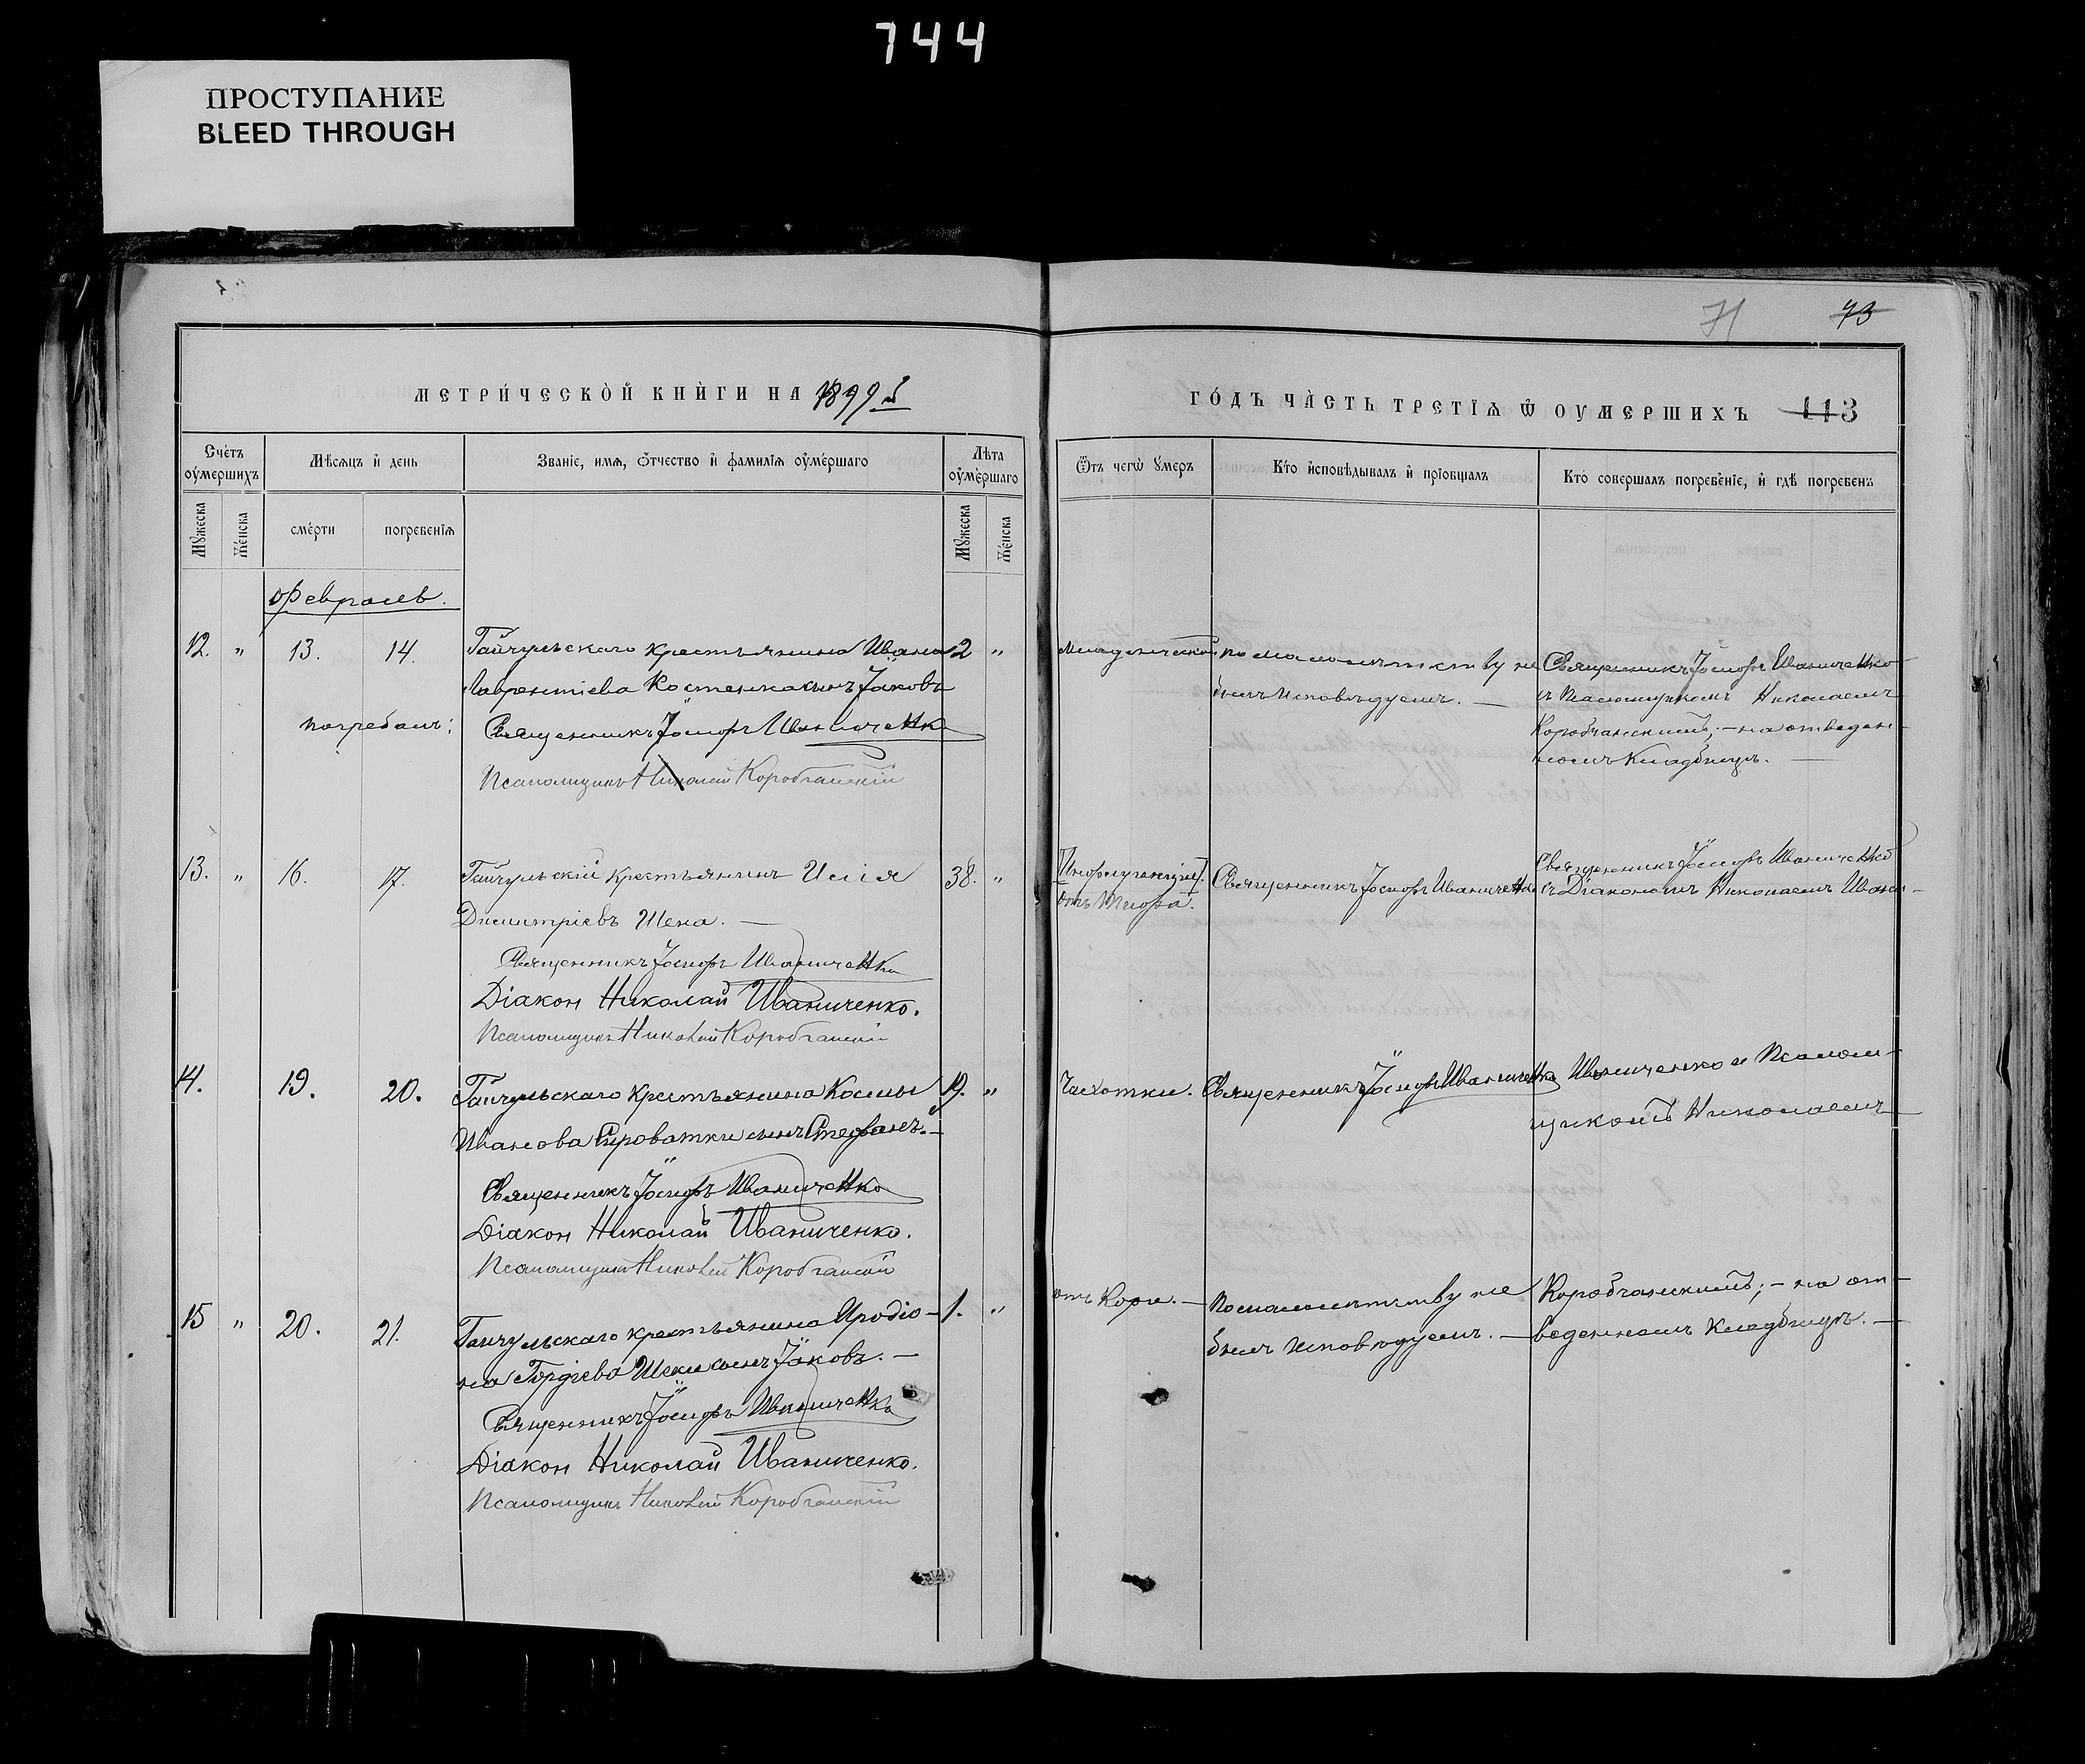 744
ПРОСТУПАНИЕ
BLEED THROUGH
71
73
МЕТРИ́ЧЕСКО̀Й КНЍГИ НА 1899 й
ГО́ДЪ ЧА̀СТЬ ТРЕТІѦ Ѿ ОУМЕРШИХЪ 113
Сче́тъ оу҆ме́ршихъ
Мѣ́сѧцъ и҆ день
Званіе, имѧ, ѻ҆́тчество и҆ фамилїѧ оу҆ме́ршаго
Лѣта оу҆ме́ршаго
Мꙋжеска
Же́нска
сме́рти
погребенїѧ
Мꙋжеска
Же́нска
Ѿ чегѡ̀ ᲂу҆меръ
Кто̀ и҆сповѣ́дывалъ и҆ прїобщалъ
Кто̀ совершалъ погребе́нїе, и҆ гдѣ̀ погребенъ
Февраль.
12. " 13. 14. Гайчульскаго крестьянина Ивана 2 "
Лаврентіева Костенка сынъ Іаковъ
погребалъ: Священникъ Іосифъ Иваниченко
Псаломщикъ Николай Коробчанскій
Младенческой
по малолѣтству не
былъ исповѣдуемъ. —
Священникъ Іосифъ Иваниченко
съ Псаломщикомъ Николаемъ
Коробчанскимъ; — на отведен-
номъ кладбищѣ. —
13. " 16. 17. Гайчульскій крестьянинъ Илія 38. "
Димитріевъ Шека. —
Священникъ Іосифъ Иваниченко
Діаконъ Николай Иваниченко.
Псаломщикъ Николай Коробчанскій
отъ Тифа.
Священникъ Іосифъ Иваниченко
Священникъ Іосифъ Иваниченко
съ Діакономъ Николаемъ Ивани-
14. 19. 20. Гайчульскаго крестьянина Космы 19. "
Иванова Сыроватки сынъ Стефанъ. —
Священникъ Іосифъ Иваниченко
Діакон Николай Иваниченко.
Псаломщикъ Николай Коробчанскій
Чахотки.
Священникъ Іосифъ Иваниченко
Иваниченко и Псалом-
щикомъ Николаемъ
15 " 20. 21. Гайчульскаго крестьянина Иродіо- 1. "
на Гордіева Шеки сынъ Іаковъ. —
Священникъ Іосифъ Иваниченко
Діакон Николай Иваниченко.
Псаломщикъ Николай Коробчанскій
отъ Кори. —
По малолѣтству не
былъ исповѣдуемъ. —
Коробчанскимъ; — на от-
веденномъ кладбищѣ. —